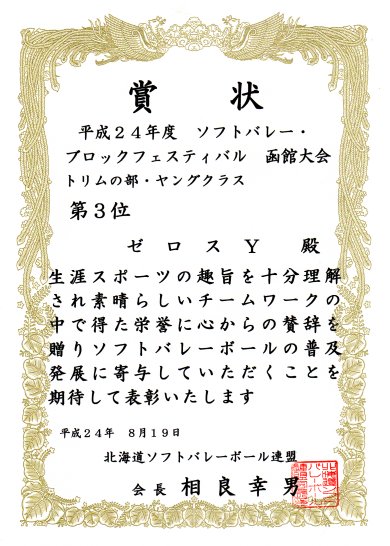 賞 状
平成24年度 ソフトバレー・
ブロックフェスティバル 函館大会
トリムの部・ヤングクラス
第3位
ゼロスY 殿
生涯スポーツの趣旨を十分理解
され素晴らしいチームワークの
中で得た栄誉に心からの賛辞を
贈りソフトバレーボールの普及
発展に寄与していただくことを
期待して表彰いたします
平成24年 8月19日
北海道ソフトバレーボール連盟
会長 相良幸男